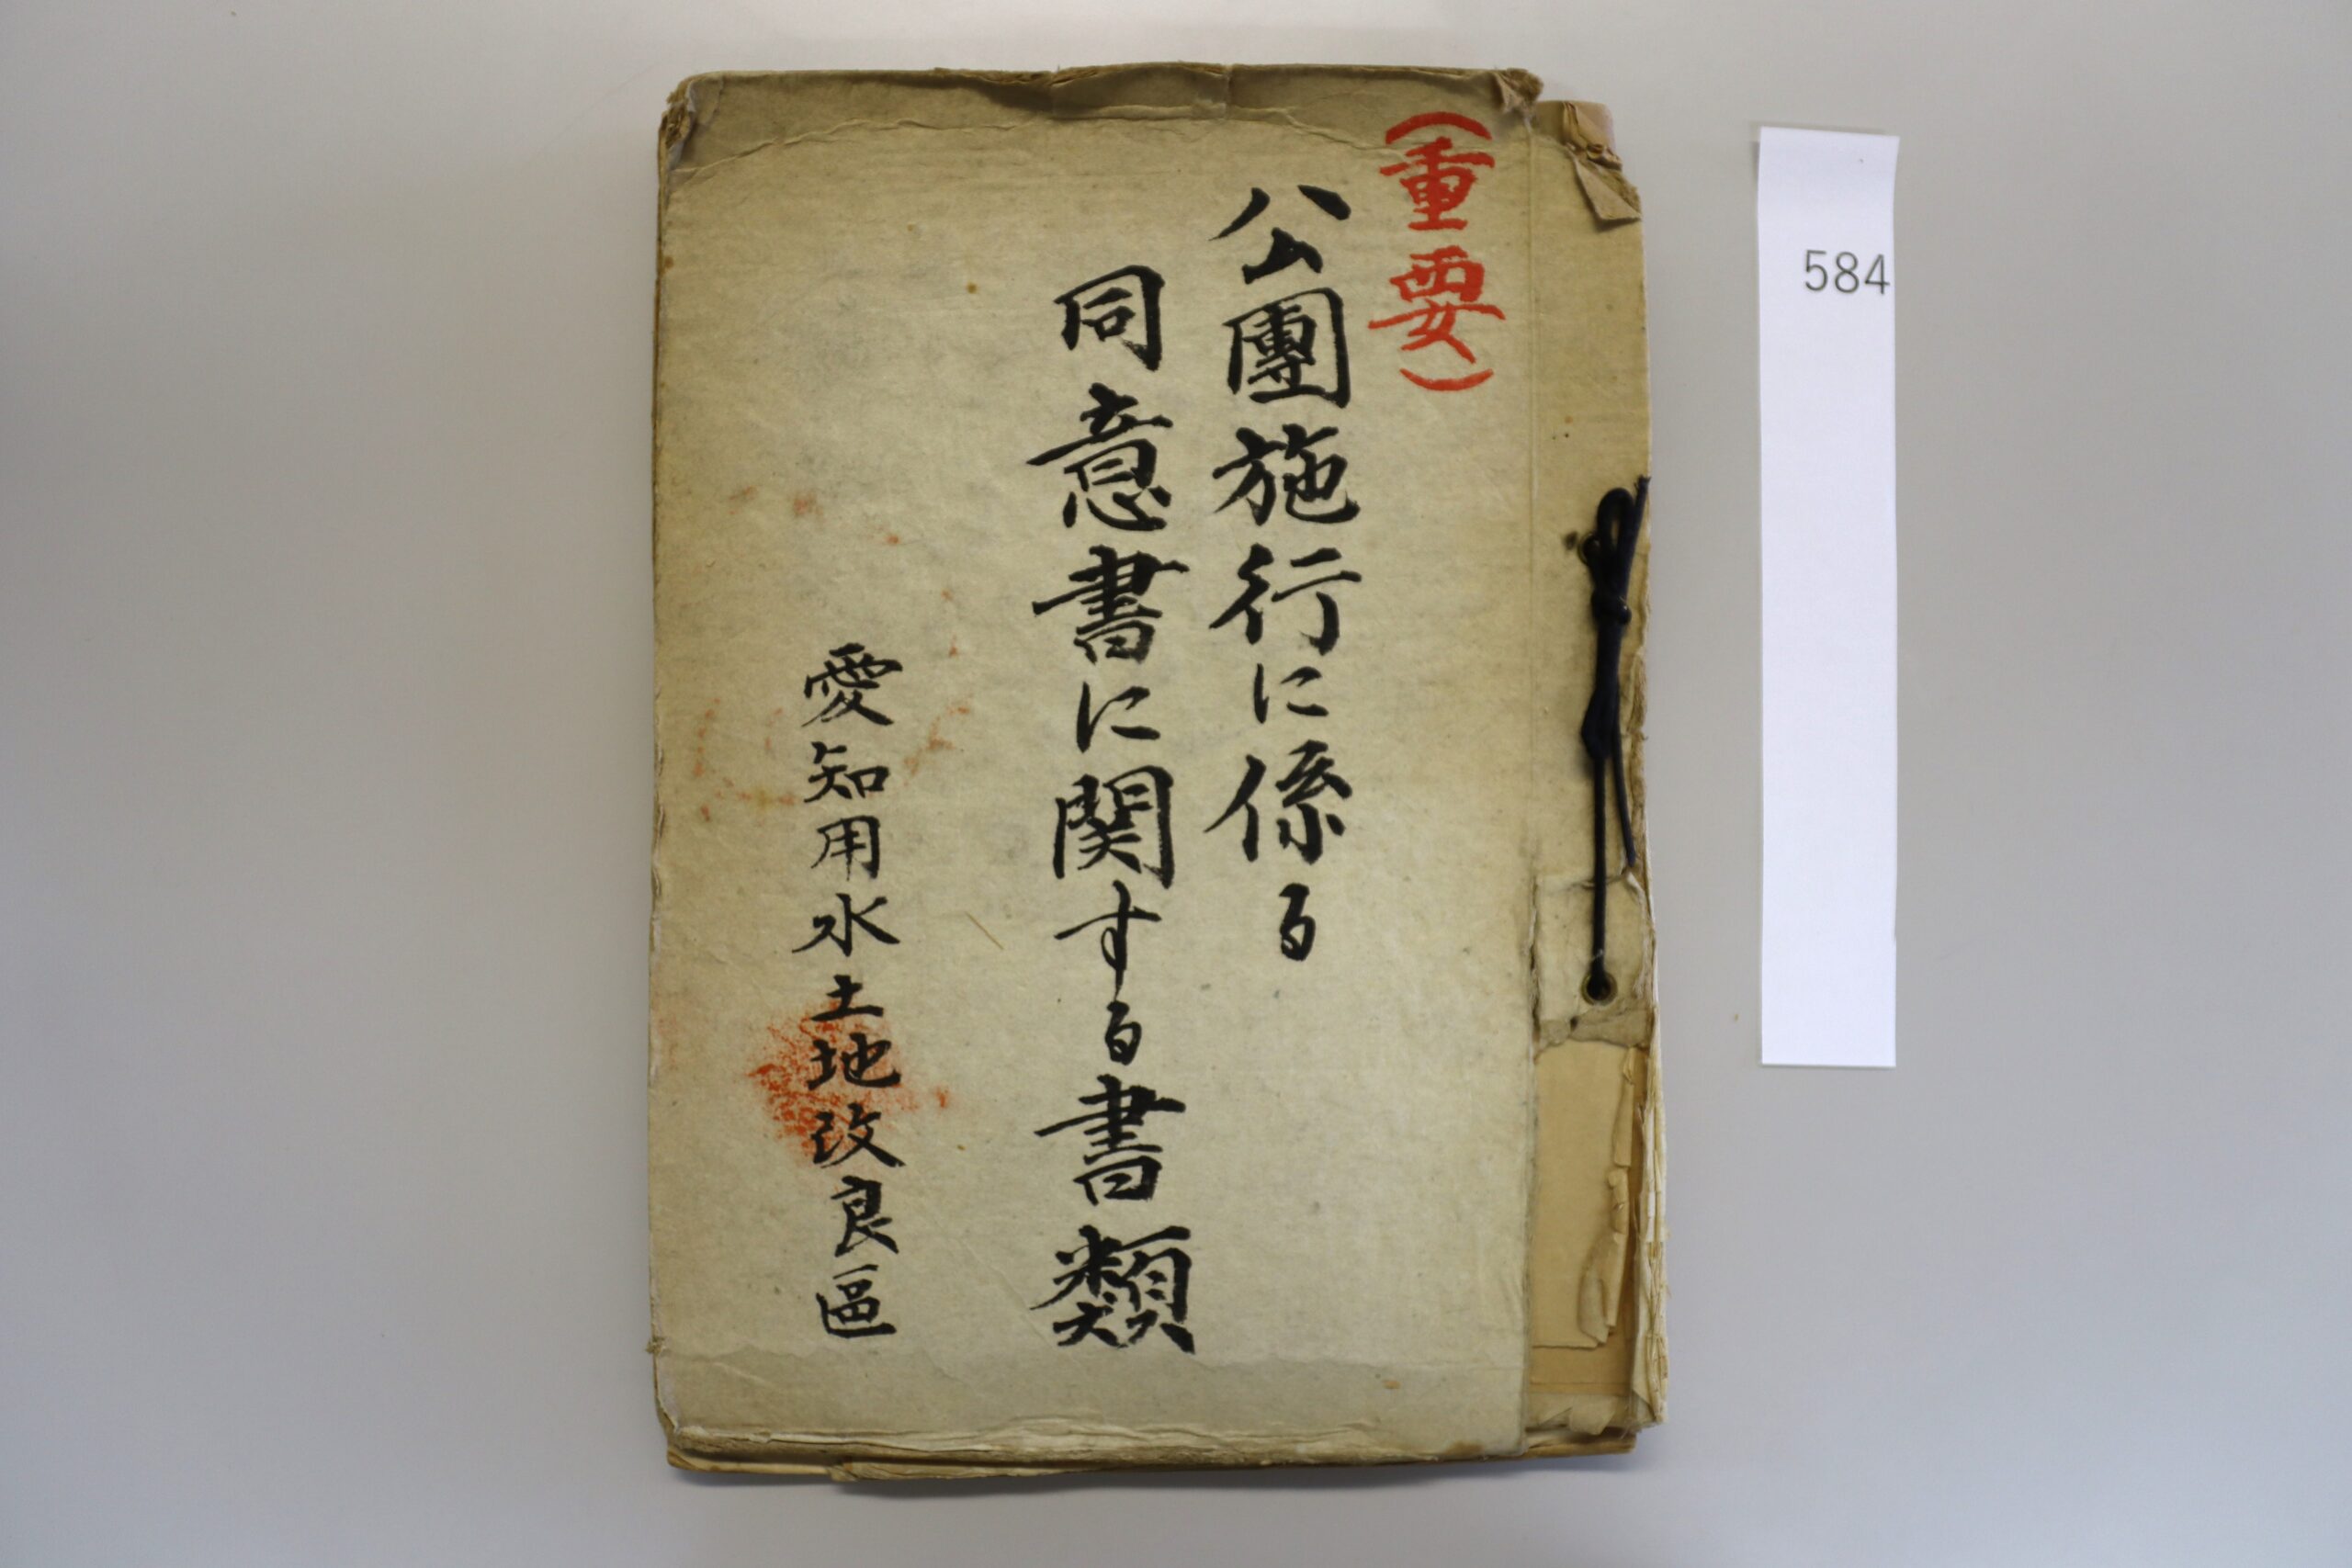 （重要）
公團施行に係る
同意書に関する書類
愛知用水土地改良區
584